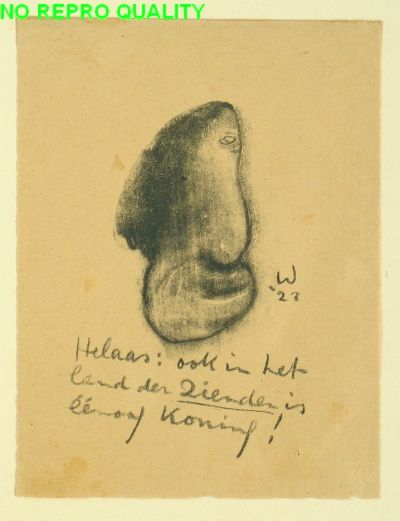 NO REPRO QUALITY
W
'23
Helaas: ook in het
land der Zienden is
éénoog Koning!